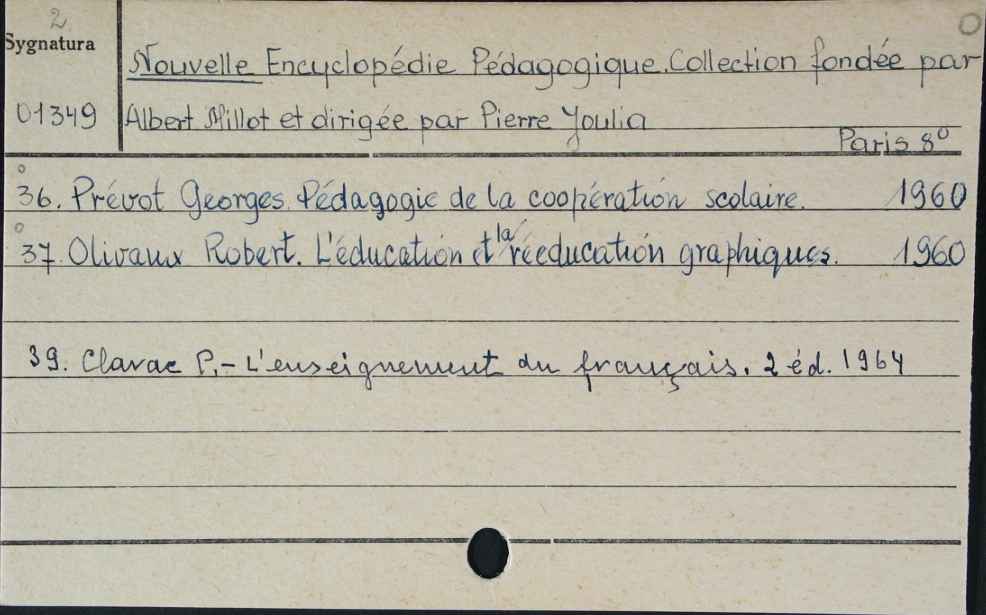 2
Sygnatura
Nouvelle Encyclopédie Pédagogique. Collection fondée par
01349 Albert Millot et dirigée par Pierre Joulia
Paris 8°
36. Prévot Georges. Pédagogie de la coopération scolaire. 1960
37. Olivaux Robert. L'éducation et la rééducation graphiques. 1960
39. Clarac P. - L'enseignement du français. 2 éd. 1964